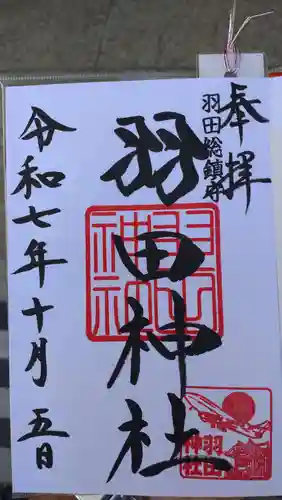 奉拝
羽田総鎮守
羽田神社
令和七年十月五日
羽田神社
羽田
神社